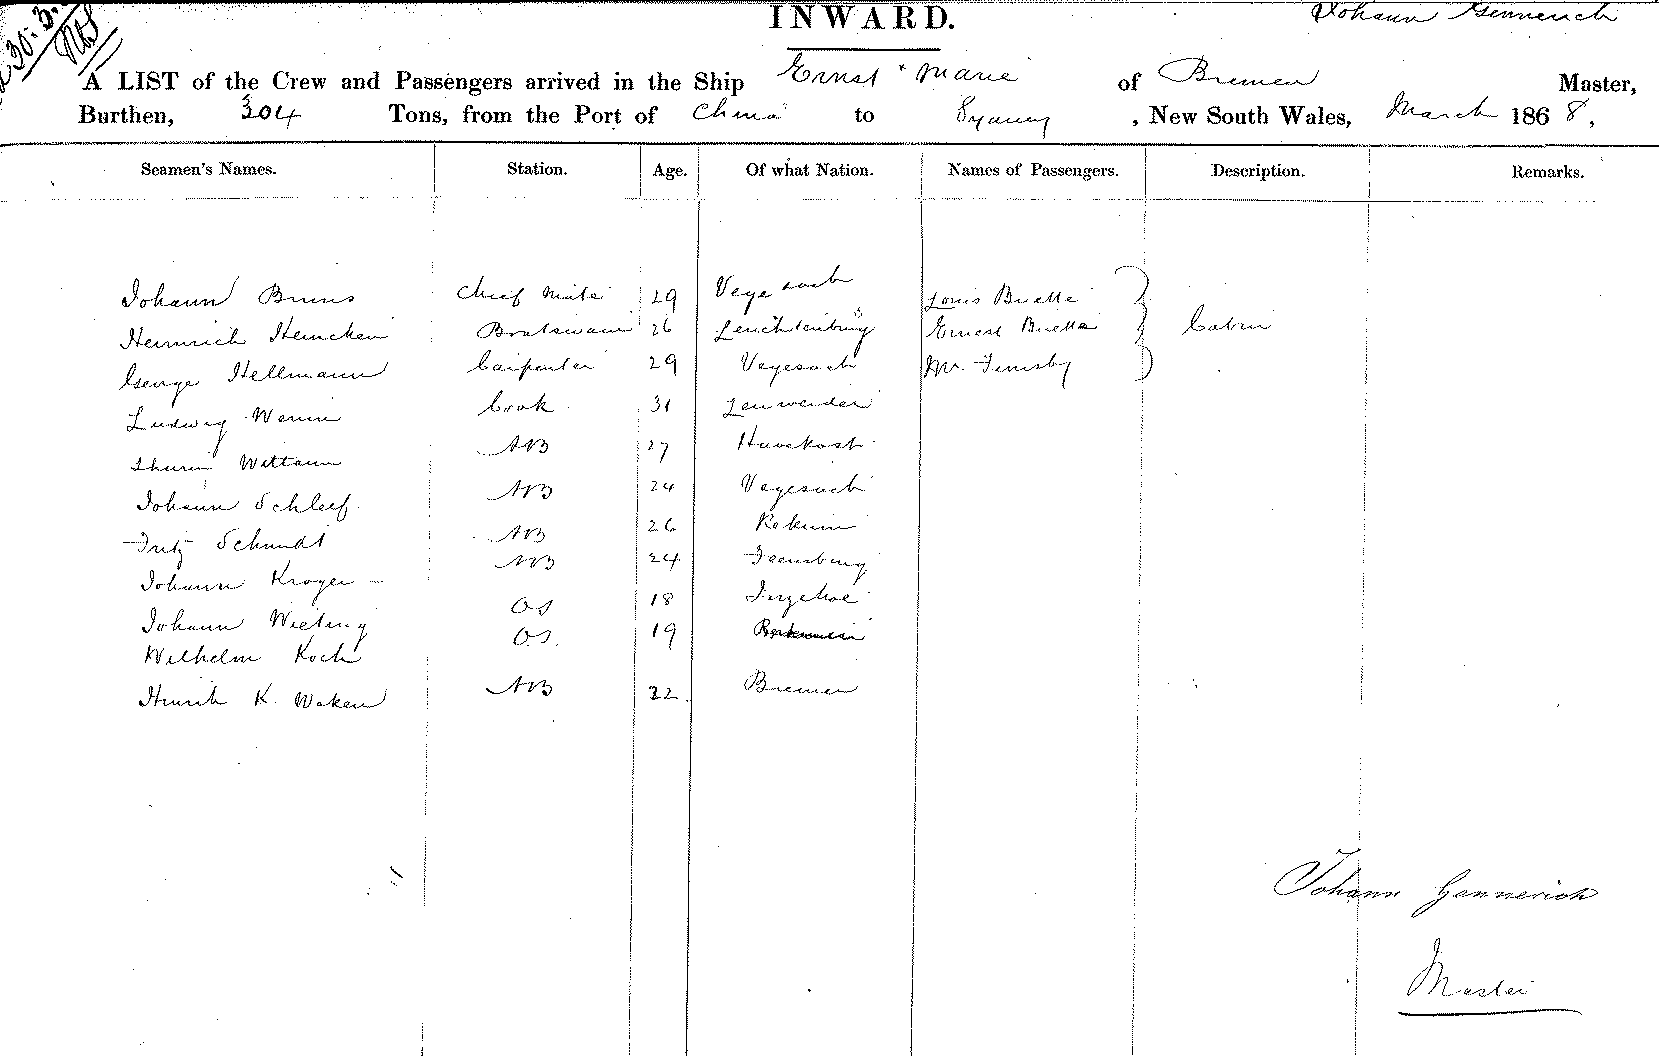 30.3.
INWARD.
Johann Gennerich
A LIST of the Crew and Passengers arrived in the Ship Ernst + Marie of Bremen Master,
Burthen, 304 Tons, from the Port of China to Sydney, New South Wales, March 1868,
Seamen's Names. Station. Age. Of what Nation. Names of Passengers. Description. Remarks.
Johann Bruns Chief Mate 29 Vegesack Louis Buette
Heinrich Hencken Boatswain 26 Leuchtenburg Ernest Buette Cabin
George Hellmann Carpenter 29 Vegesack Mr.
Ludwig Cook 31
AB 27
Johann Schleef AB 24 Vegesack
Fritz Schmidt AB 26 Rekum
Johann Kroger AB 24
Johann Wieting OS 18
Wilhelm Koch OS. 19
Hinrik K. AB 22 Bremen
Johann Gennerich
Master